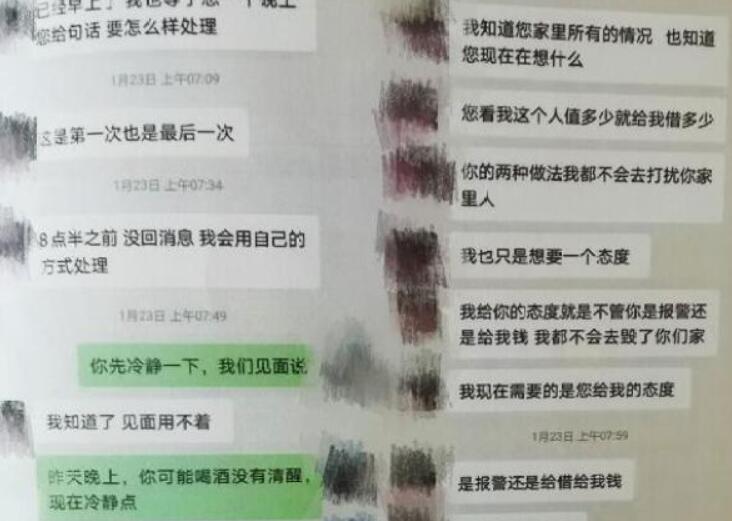 已经早上了 我也等了您一个晚上
您给句话 要怎么样处理
1月23日 上午07:09
这是第一次也是最后一次
1月23日 上午07:34
8点半之前 没回消息 我会用自己的
方式处理
1月23日 上午07:49
你先冷静一下，我们见面说
我知道了 见面用不着
昨天晚上，你可能喝酒没有清醒，
现在冷静点
我知道您家里所有的情况 也知道
您现在在想什么
您看我这个人值多少就给我借多少
你的两种做法我都不会去打扰你家
里人
我也只是想要一个态度
我给你的态度就是不管你是报警还
是给我钱 我都不会去毁了你们家
我现在需要的是您给我的态度
1月23日 上午07:59
是报警还是给借给我钱